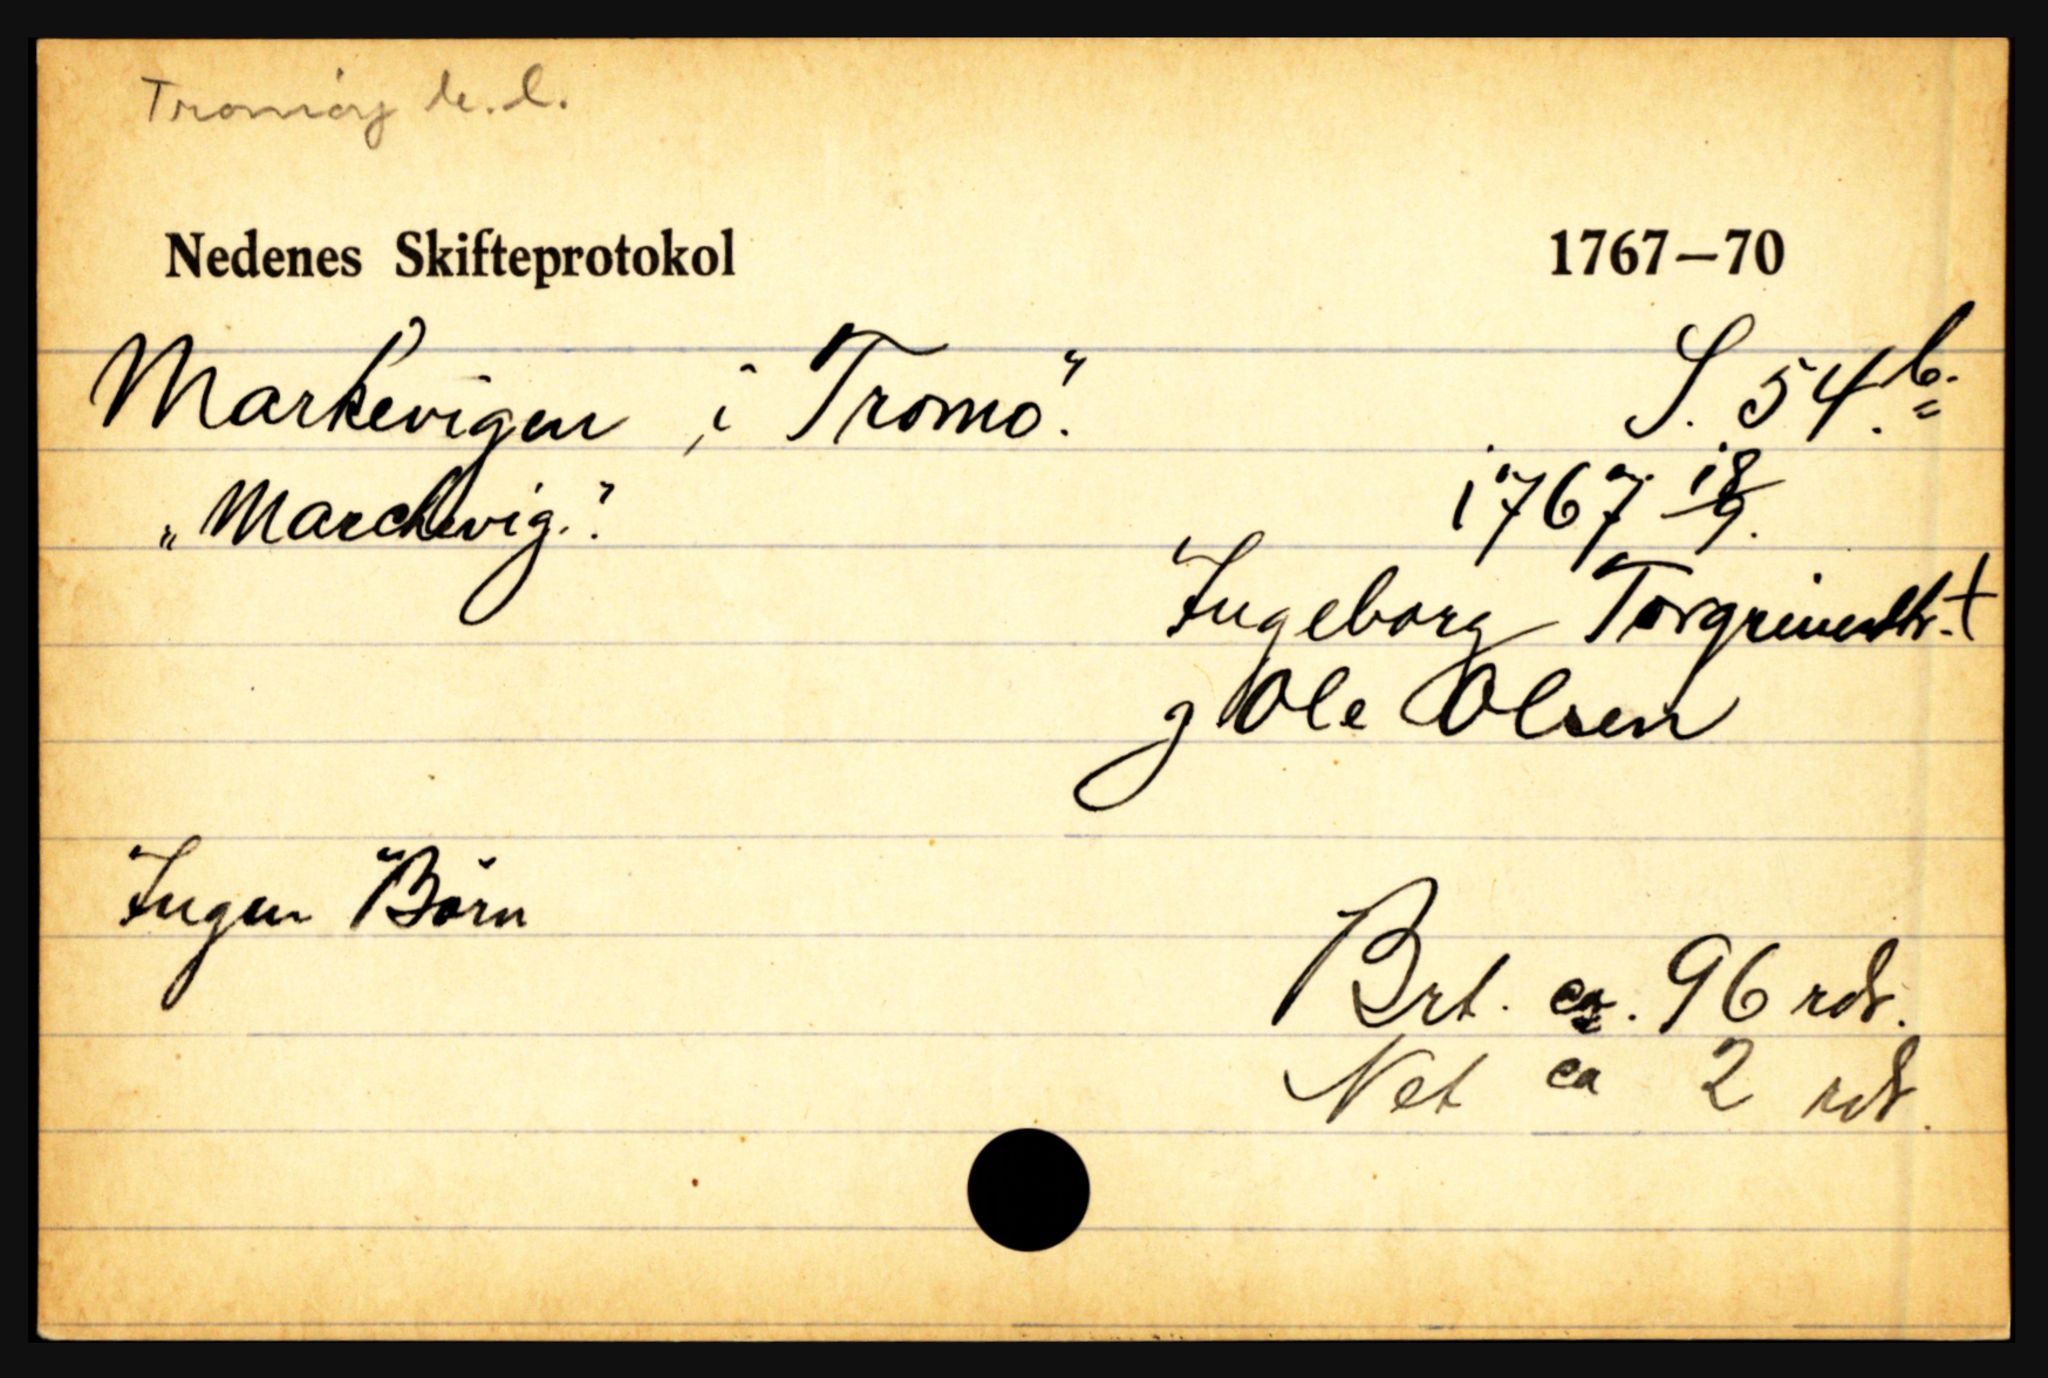 Tromøy h.l.
Nedenes Skifteprotokol 1767—70
Markevigen i Tromö. S. 54.b.
„Marchevig.” 1767 18/9.
Ingeborg Torgrimsdtr. †
g Ole Olsen
Ingen Börn
Brt. ca. 96 rdr.
Net ca 2 rdr.